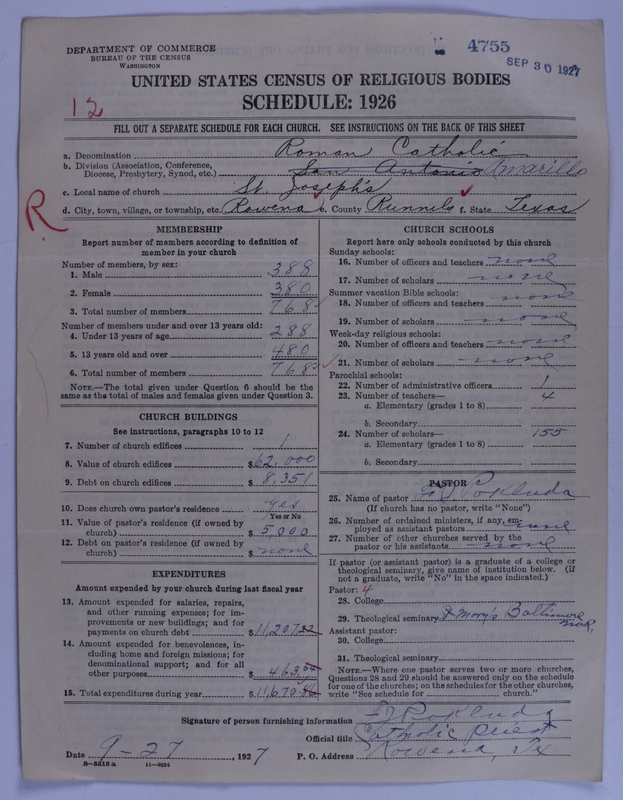 DEPARTMENT OF COMMERCE
BUREAU OF THE CENSUS
WASHINGTON
4755
SEP 30 1927
UNITED STATES CENSUS OF RELIGIOUS BODIES
SCHEDULE: 1926
12
FILL OUT A SEPARATE SCHEDULE FOR EACH CHURCH. SEE INSTRUCTIONS ON THE BACK OF THIS SHEET
a. Denomination Roman Catholic
b. Division (Association, Conference, Diocese, Presbytery, Synod, etc.) San Antonio Amarillo
c. Local name of church St. Joseph's
R
d. City, town, village, or township, etc. Rowena e. County Runnels f. State Texas
MEMBERSHIP
Report number of members according to definition of
member in your church
Number of members, by sex:
1. Male 388
2. Female 380
3. Total number of members 768
Number of members under and over 13 years old:
4. Under 13 years of age 288
5. 13 years old and over 480
6. Total number of members 768
NOTE.—The total given under Question 6 should be
same as the total of males and females given under Question 3.
CHURCH BUILDINGS
See instructions, paragraphs 10 to 12
7. Number of church edifices 1
8. Value of church edifices $62,000
9. Debt on church edifices $8,351
10. Does church own pastor's residence yes
Yes or No
11. Value of pastor's residence (if owned by
church) $5,000
12. Debt on pastor's residence (if owned by
church) $none
EXPENDITURES
Amount expended by your church during last fiscal year
13. Amount expended for salaries, repairs,
and other running expenses; for im-
provements or new buildings; and for
payments on church debt $11,207.22
14. Amount expended for benevolences, in-
cluding home and foreign missions; for
denominational support; and for all
other purposes $463.
15. Total expenditures during year $11,670.
CHURCH SCHOOLS
Report here only schools conducted by this church
Sunday schools:
16. Number of officers and teachers none
17. Number of scholars none
Summer vacation Bible schools:
18. Number of officers and teachers none
19. Number of scholars none
Week-day religious schools:
20. Number of officers and teachers none
21. Number of scholars none
Parochial schools:
22. Number of administrative officers 1
23. Number of teachers— 4
a. Elementary (grades 1 to 8)
b. Secondary
24. Number of scholars— 155
a. Elementary (grades 1 to 8)
b. Secondary
PASTOR
25. Name of pastor F J Pokluda
(If church has no pastor, write "None")
26. Number of ordained ministers, if any, em-
ployed as assistant pastors none
27. Number of other churches served by the
pastor or his assistants none
If pastor (or assistant pastor) is a graduate of a college or
theological seminary, give name of institution below. (If
not a graduate, write "No" in the space indicated.)
Pastor: 4
28. College
29. Theological seminary St Mary's Baltimore Md,
Assistant pastor:
30. College
31. Theological seminary
NOTE.—Where one pastor serves two or more churches,
Questions 28 and 29 should be answered only on the schedule
for one of the churches; on the schedules for the other churches,
write "See schedule for church."
Signature of person furnishing information F J Pokluda
Official title Catholic Priest
Date 9-27, 1927 P. O. Address Rowena, Tx
8-5518a 11-9024